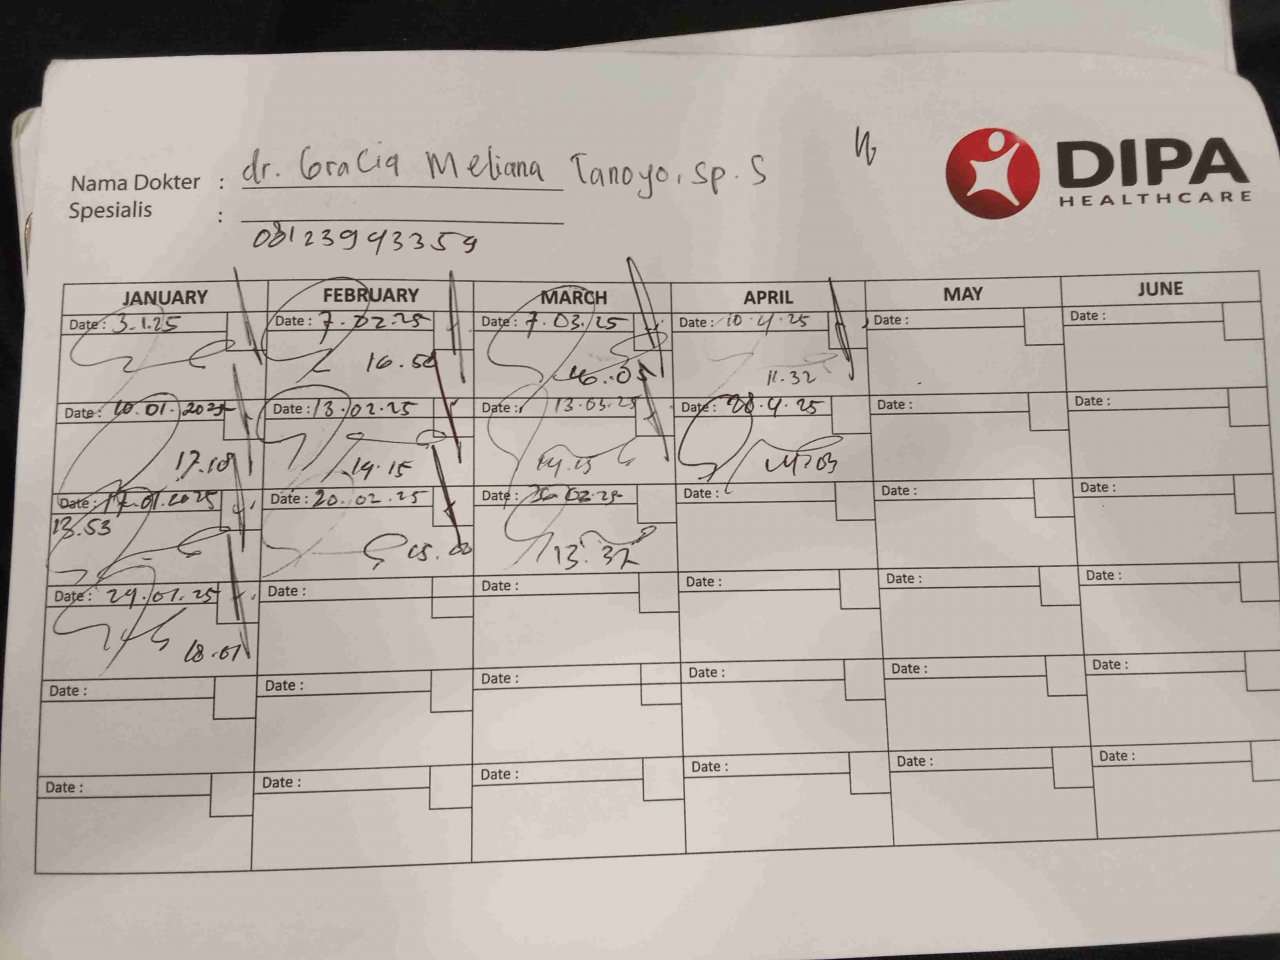 Nama Dokter : dr. Gracia Meliana Tanoyo, Sp. S
DIPA
HEALTHCARE
Spesialis :
08123943359
JANUARY FEBRUARY MARCH APRIL MAY JUNE
Date : 3.1.25 Date : 7.02.25 Date : 7.03.25 Date : 10.4.25 Date : Date :
16.50 16.05 11.32
Date : 10.01.2025 Date : 13.02.25 Date : 13.03.25 Date : 28.4.25 Date : Date :
17.18 14.15 14.15
Date : 17.01.2025 Date : 20.02.25 Date : Date : Date : Date :
13.53 15.00 13.32
Date : 29.01.25 Date : Date : Date : Date : Date :
18.01
Date : Date : Date : Date : Date : Date :
Date : Date : Date : Date : Date : Date :